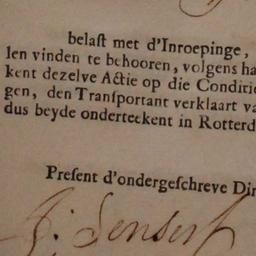 belaſt met d'Inroepinge,
len vinden te behooren, volgens ha
kent dezelve Actie op die Conditie
gen, den Tranſportant verklaart va
dus beyde onderteekent in Rotterd
Preſent d'ondergeſchreve Dir